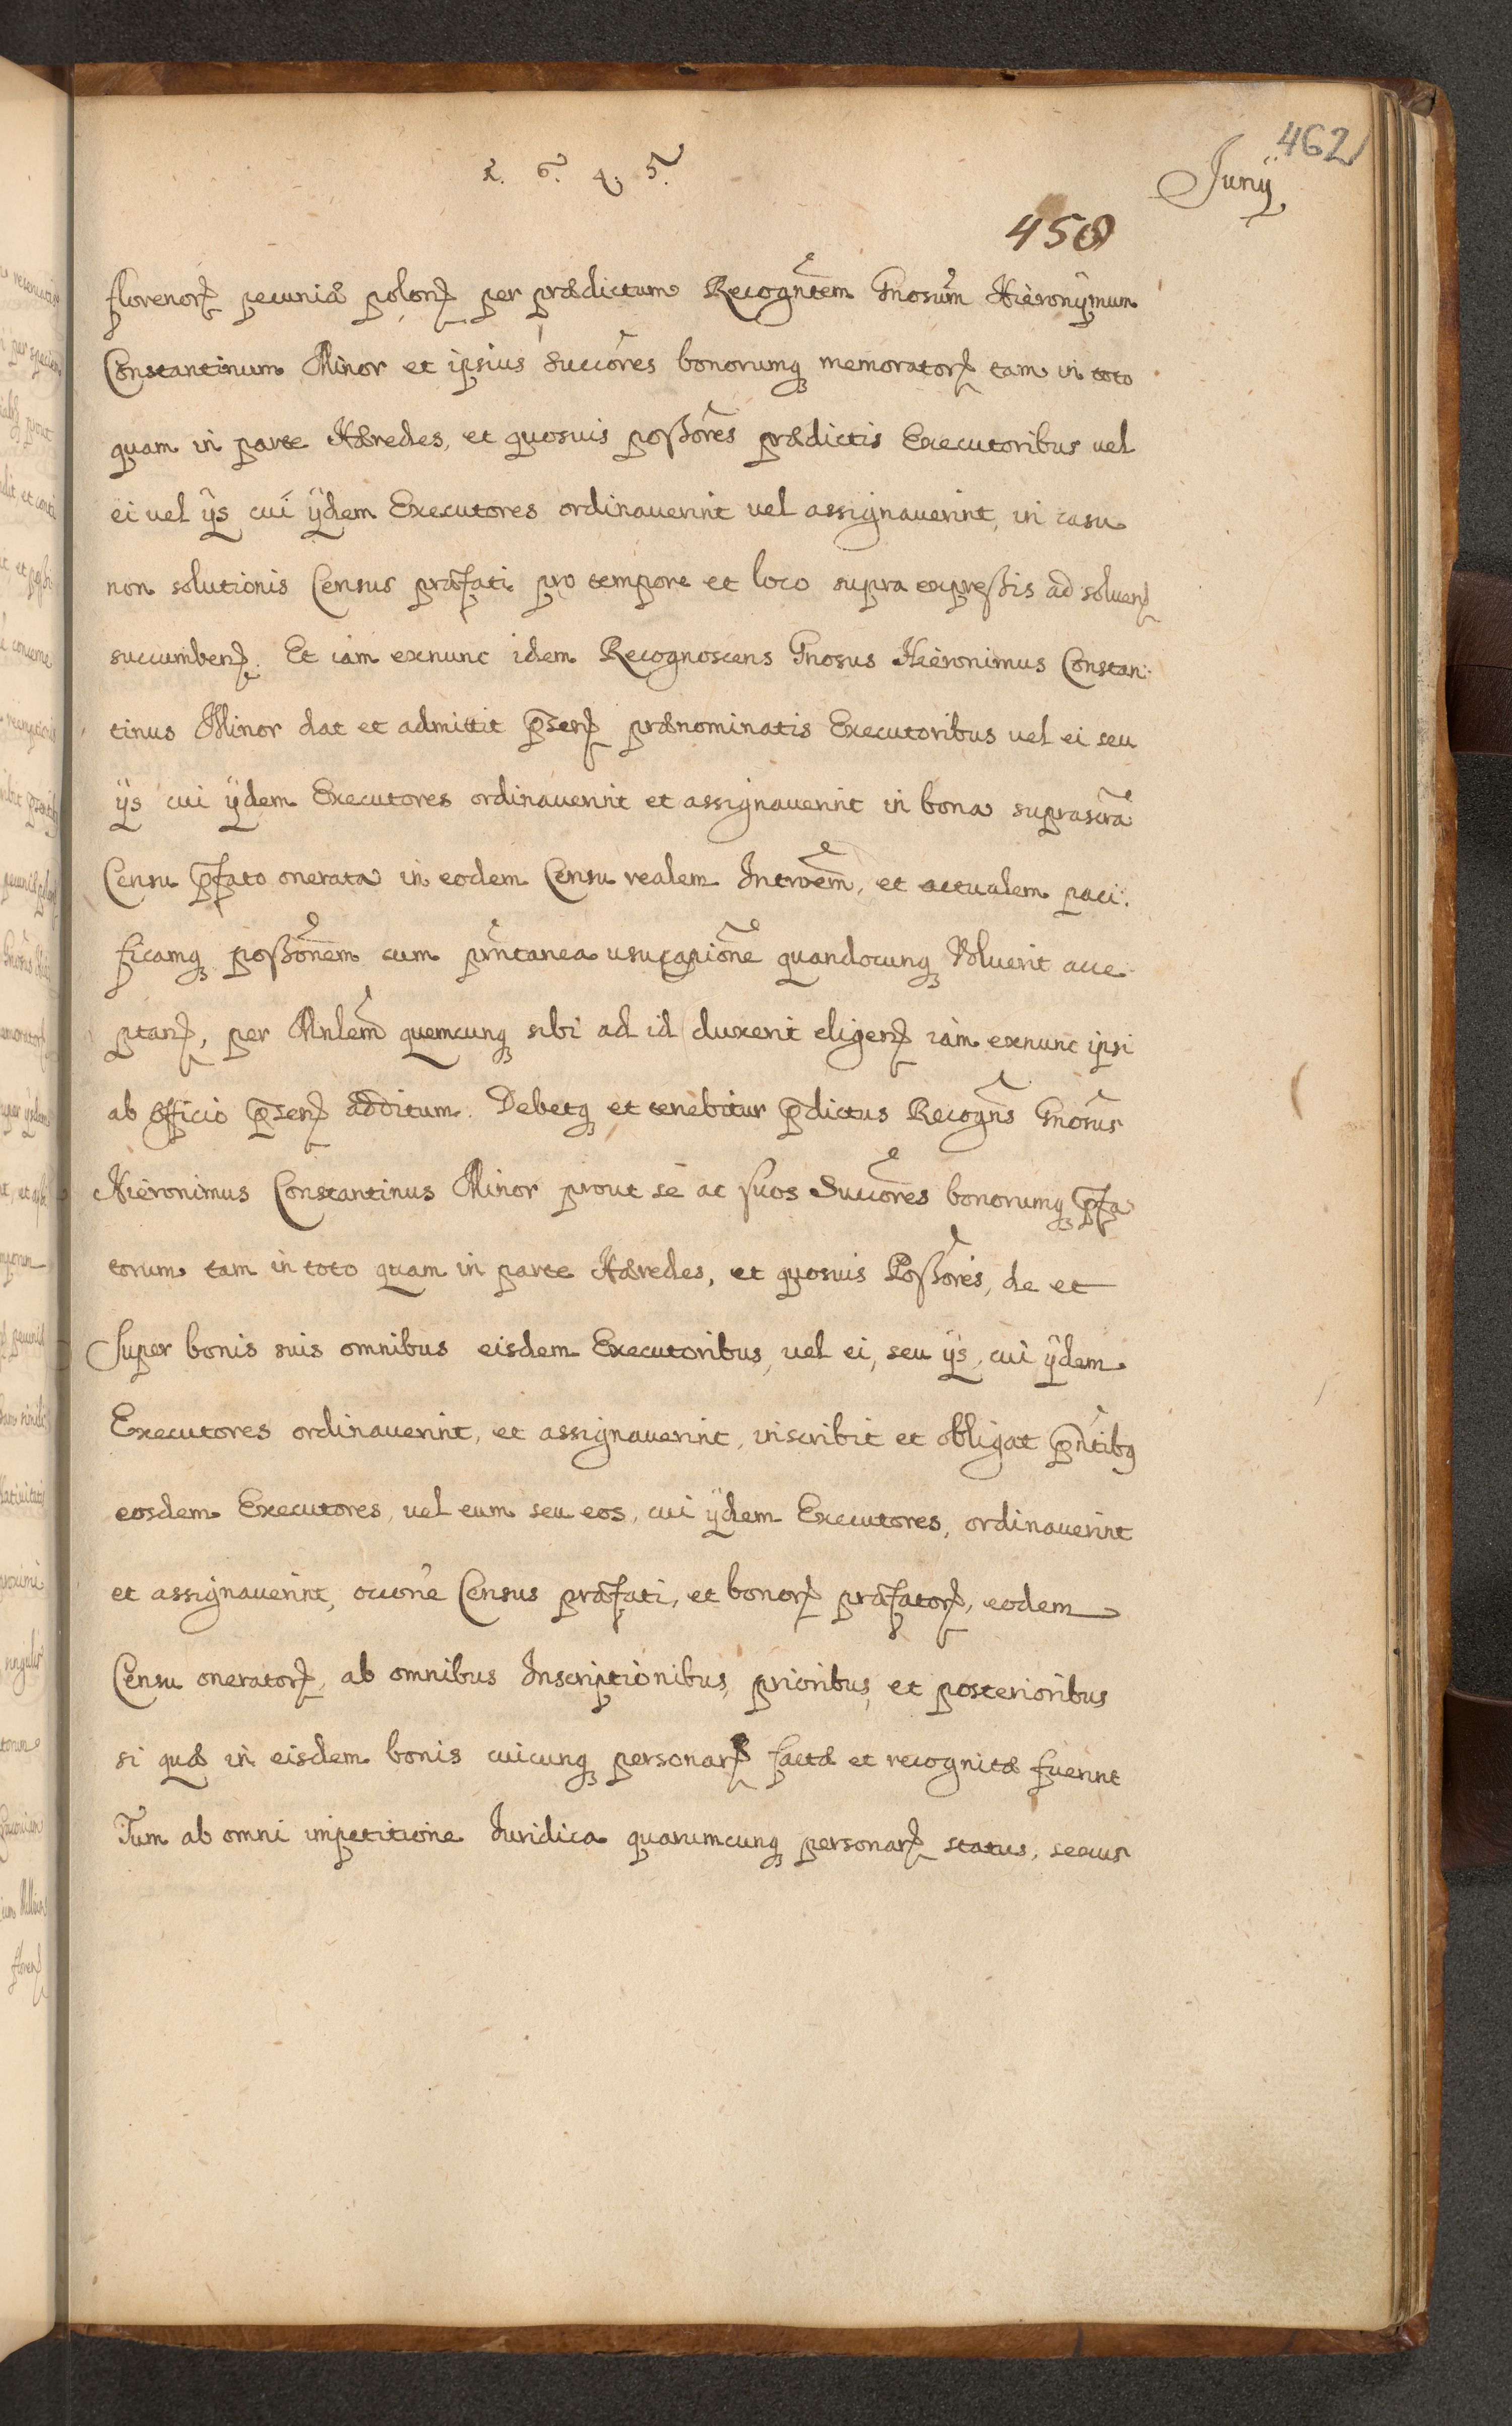 462
1. 6. 4. 5.
Junÿ
458
florenorꝝ pecuniæ polonꝝ per prædictum Recogn̄tem Gnosum Hieronÿmum
Constantinum Minor et ipsius Succōres bonorumqꝫ memoratorꝝ tam in toto
quam in parte Hæredes, et quosuis poßōres prædictis Executoribus uel
ei uel ÿs cui ÿdem Executores ordinauerint uel assignauerint, in casu
non solutionis Census præfati pro tempore et loco supra expreßis ad soluenꝝ
succumbenꝝ. Et iam exnunc idem Recognoscens Gnosus Hieronimus Constan:
tinus Minor dat et admittit p̄senꝝ prænominatis Executoribus uel ei seu
ÿs cui ÿdem Executores ordinauerint et assignauerint in bona suprascr̄a
Censu p̄fato onerata in eodem Censu realem Intro͞em, et actualem paci:
ficamqꝫ poßonēm cum pr̄ntanea usucapionē quandocunqꝫ Voluerit acce
ptanꝝ, per Mnlem̄ quemcunqꝫ sibi ad id duxerit eligenꝝ iam exnunc ipsi
ab officio p̄senꝝ additum. Debetqꝫ et tenebitur p̄dictus Recogn̄s Gnosus
Hieronimus Constantinus Minor prout se ac suos Succōres bonorumqꝫ p̄fa
torum tam in toto quam in parte Hæredes, et quosuis Poßōres, de et
Super bonis suis omnibus eisdem Executoribus, uel ei, seu ÿs, cui ÿdem
Executores ordinauerint, et assignauerint, inscribit et obligat p̄ntibꝫ
eosdem Executores, uel eum seu eos, cui ÿdem Executores, ordinauerint
et assignauerint, occon̄e Census præfati, et bonorꝝ præfatorꝝ, eodem
Censu oneratorꝝ, ab omnibus Inscriptionibus, prioribus, et posterioribus
si quæ in eisdem bonis cuicunqꝫ personarꝝ factæ et recognitæ fuerint
Tum ab omni impetitione Iuridica quarumcunqꝫ personarꝝ status, secus